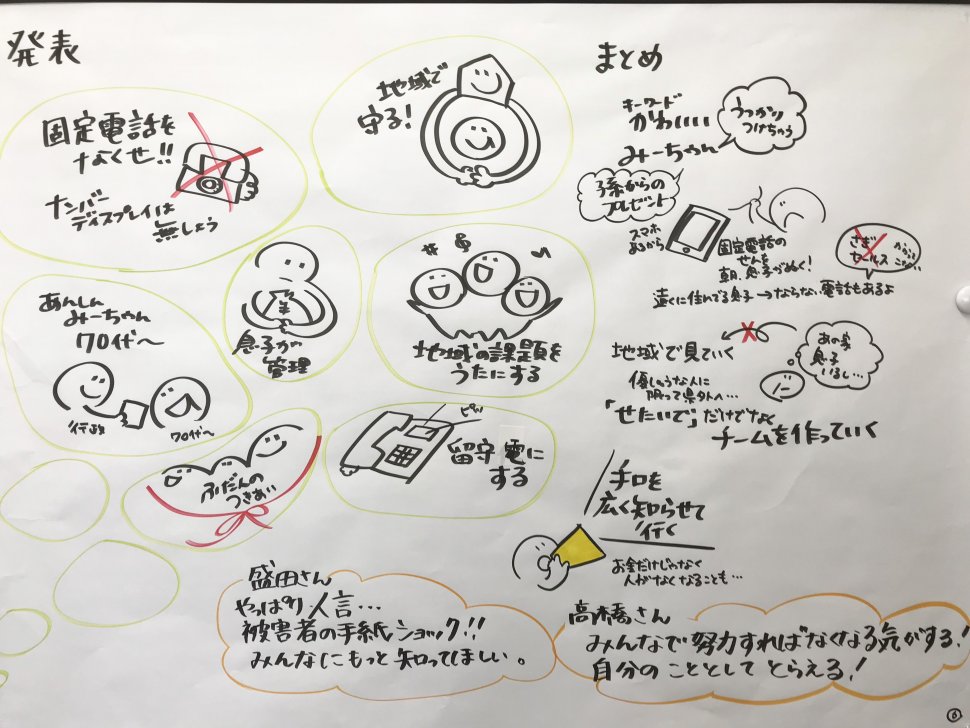 発表
固定電話を
なくせ!!
ナンバー
ディスプレイは
無しょう
地域で
守る!
あんしん
みーちゃん
70代〜
行政
70代〜
息子が
管理
地域の課題を
うたにする
ふだんの
つきあい
ピッ
留守電に
する
盛田さん
やっぱり人言…
被害者の手紙ショック!!
みんなにもっと知ってほしい。
まとめ
キーワード
かわいい
みーちゃん
うっかり
つけちゃう
孫からの
プレゼント
スマホ
あるから
固定電話の
せんを
朝、息子がぬく!
さぎ
セールス
遠くに住んでる息子→ならない電話もあるよ
地域で見ていく
あの家
息子
いるし…
優しそうな人に
限って県外へ…
「せたいで」だけでなく
チームを作っていく
手口を
広く知らせて
行く
お金だけじゃなく
人がなくなることも…
高橋さん
みんなで努力すればなくなる気がする!
自分のこととしてとらえる!
6